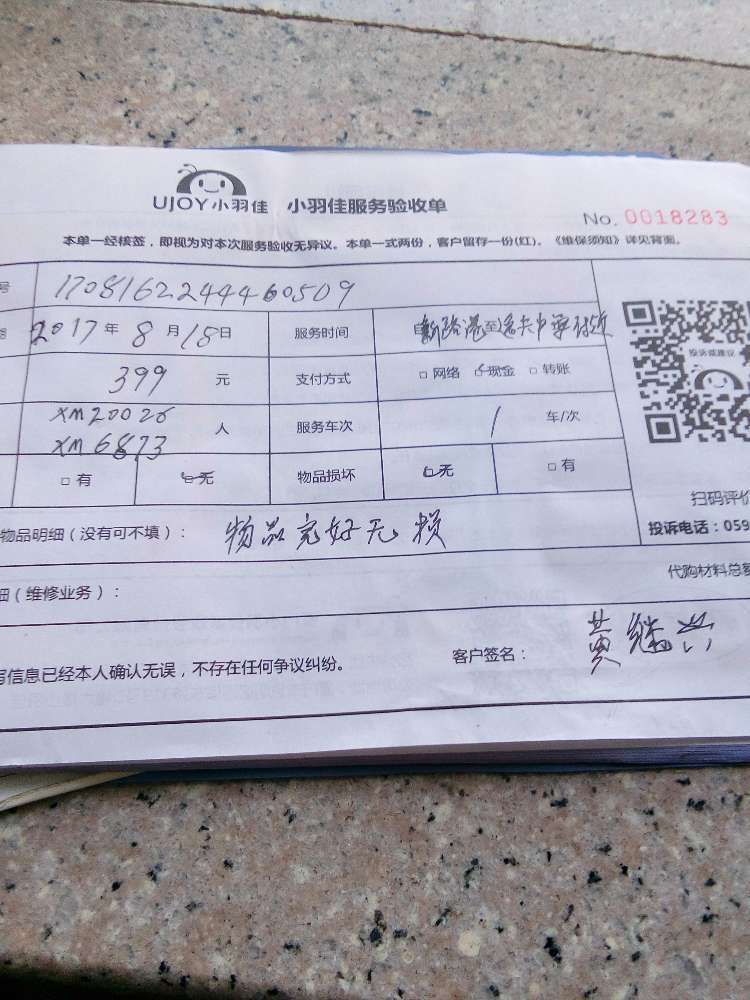 UJOY小羽佳 小羽佳服务验收单
No. 0018283
本单一经核签，即视为对本次服务验收无异议。本单一式两份，客户留存一份(红)。《维保须知》详见背面。
号 1708162244460509
2017年8月18日 服务时间 自 至
399 元 支付方式 □网络 □现金 □转账
XM20026
XM6873 人 服务车次 1 车/次
□有 □无 物品损坏 □无 □有
投诉或建议
扫码评价
物品明细（没有可不填）： 物品完好无损
投诉电话：059
代购材料总
细（维修业务）：
写信息已经本人确认无误，不存在任何争议纠纷。 客户签名： 黄